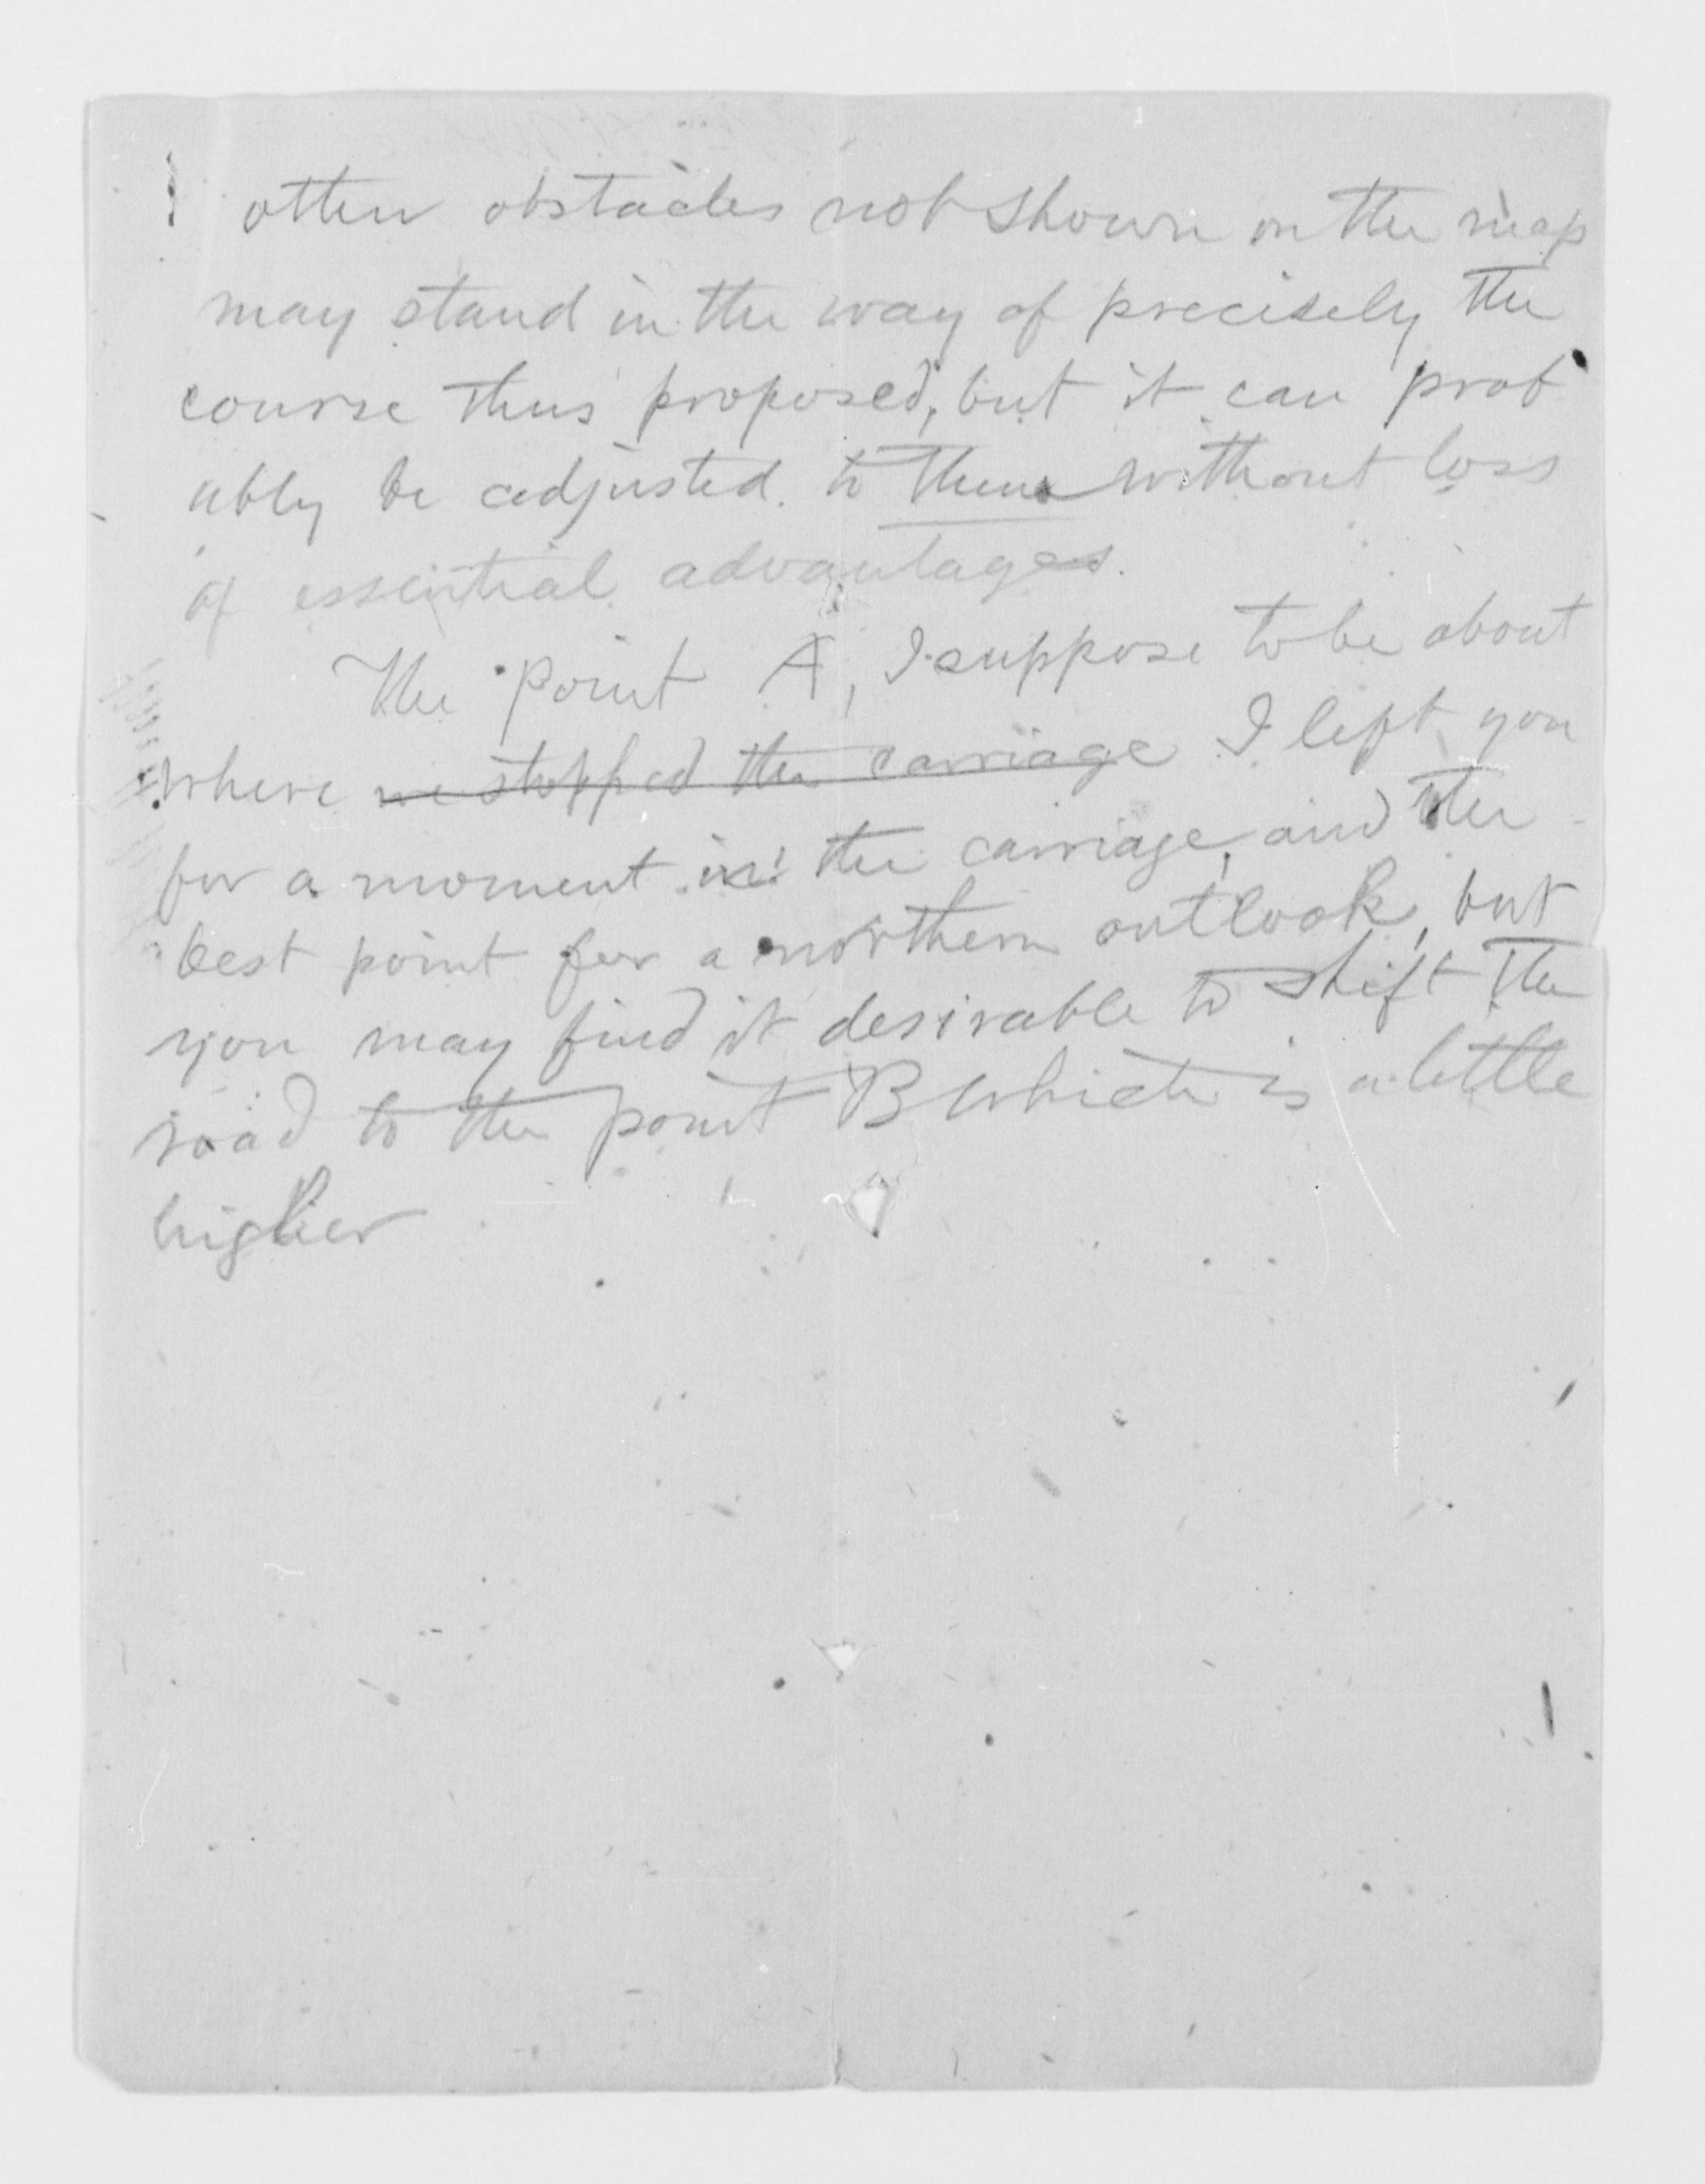 other obstacles not shown on the map
may stand in the way of precisely the
course thus proposed, but it can prob
ably be adjusted to them without loss
of essential advantages.
The point A, I suppose to be about
where we stopped the carriage I left you
for a moment in the carriage, and the
best point for a northern outlook, but
you may find it desirable to shift the
road to the point B which is a little
higher